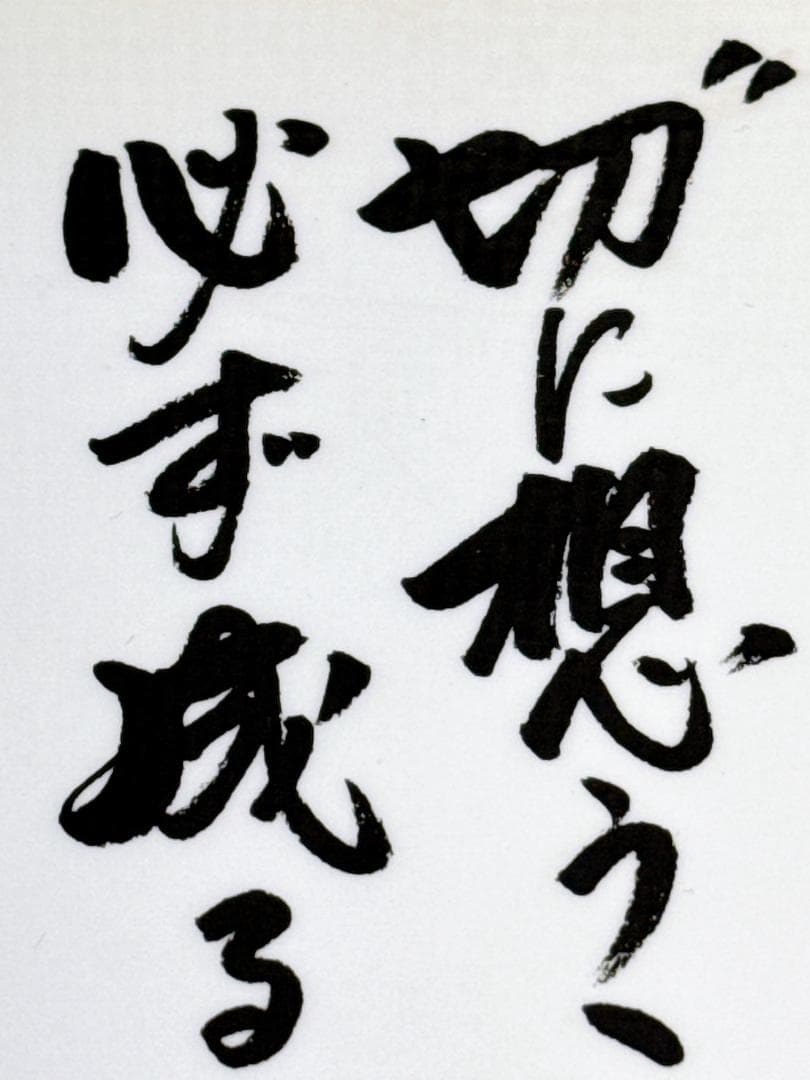 〝切に想う、
必ず成る